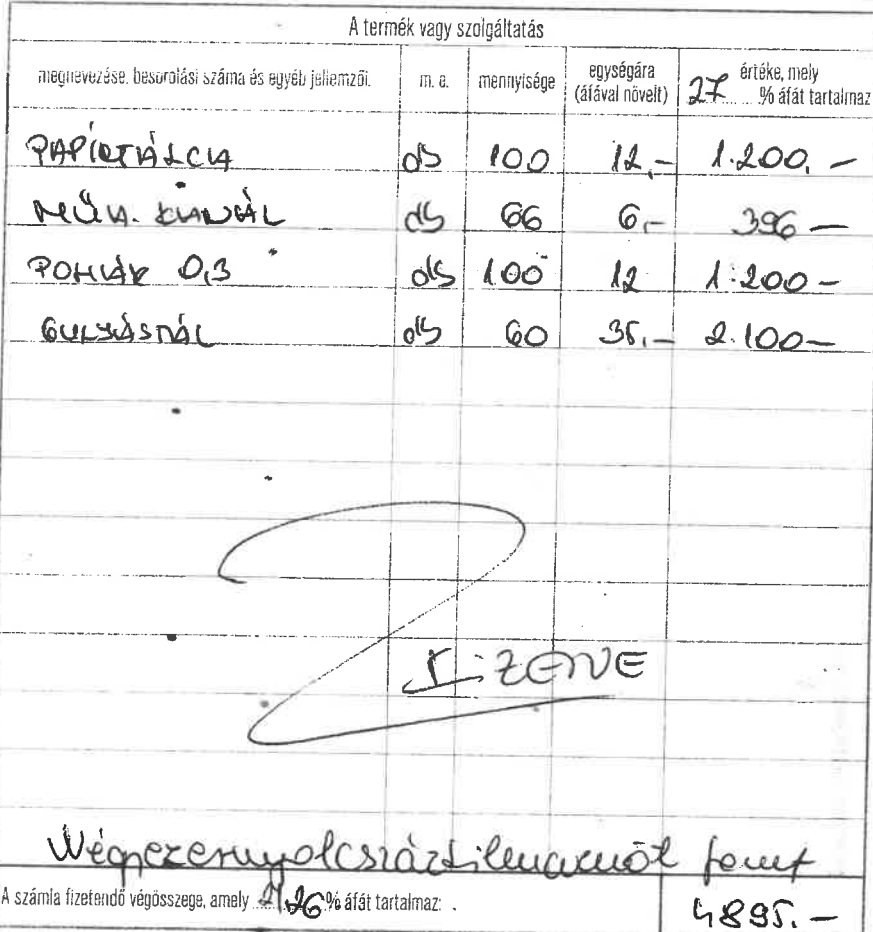 A termék vagy szolgáltatás
megnevezése, besorolási száma és egyéb jellemzői. m. e. mennyisége egységára (áfával növelt) 27 értéke, mely % áfát tartalmaz
PAPÍRTÁLCA db 100 12,- 1.200,-
MŰA. KANÁL db 66 6,- 396-
POHÁR 0,3 db 100 12 1.200-
GULYÁSTÁL db 60 35,- 2.100-
FIZETVE
Négyezernyolcszázkilencvenöt forint
A számla fizetendő végösszege, amely 21,26% áfát tartalmaz:
4895.-